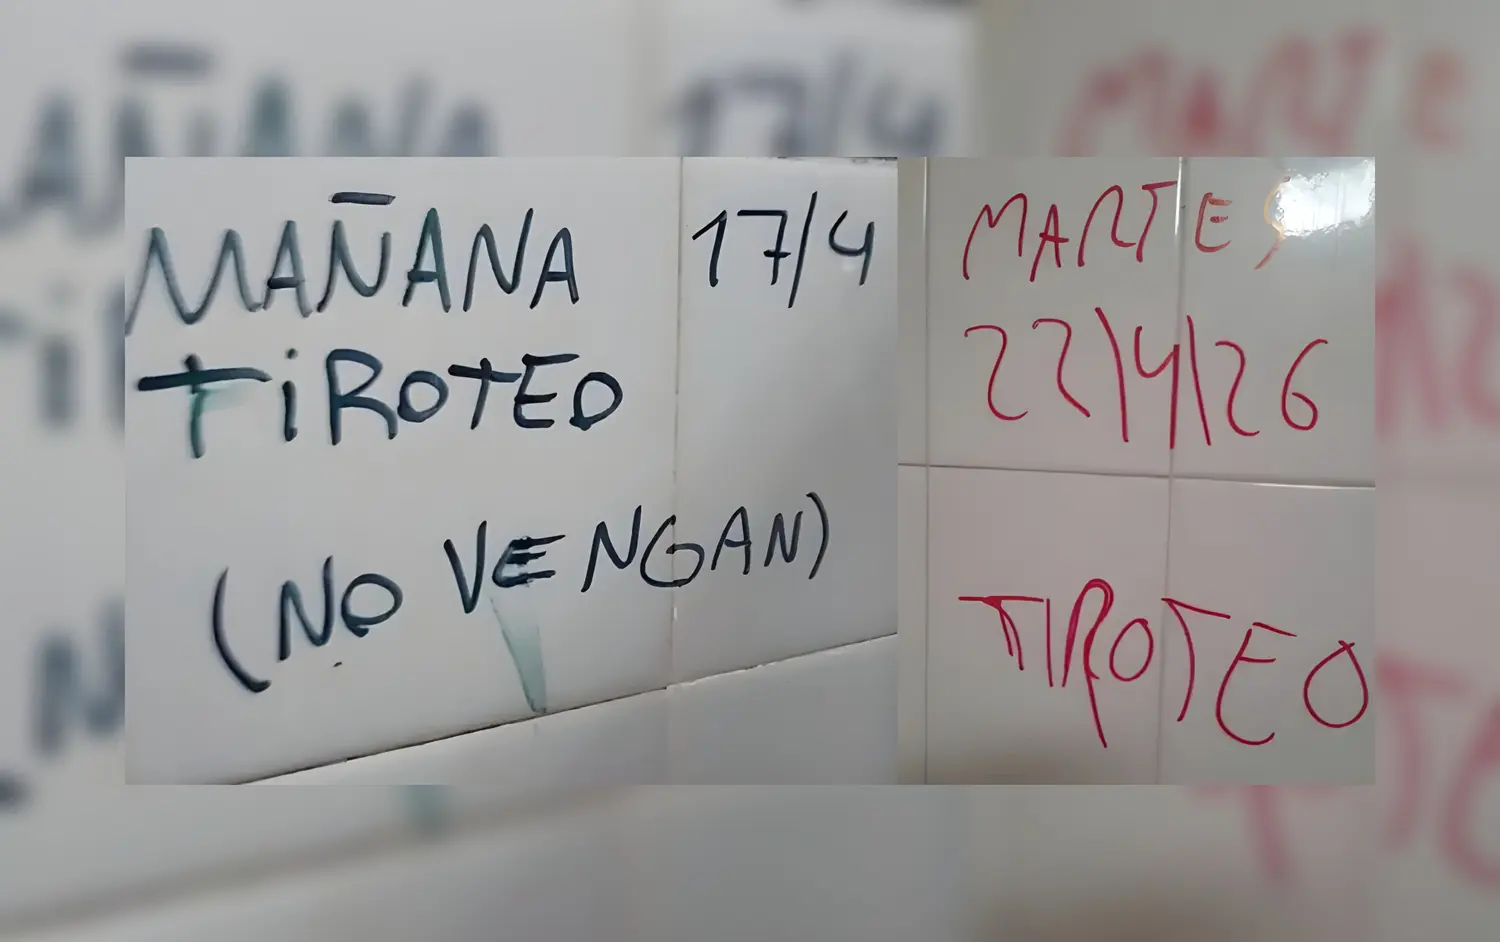 MAÑANA 17/4
TiROTEO
(NO VENGAN)
MARTES
22/4/26
TIROTEO